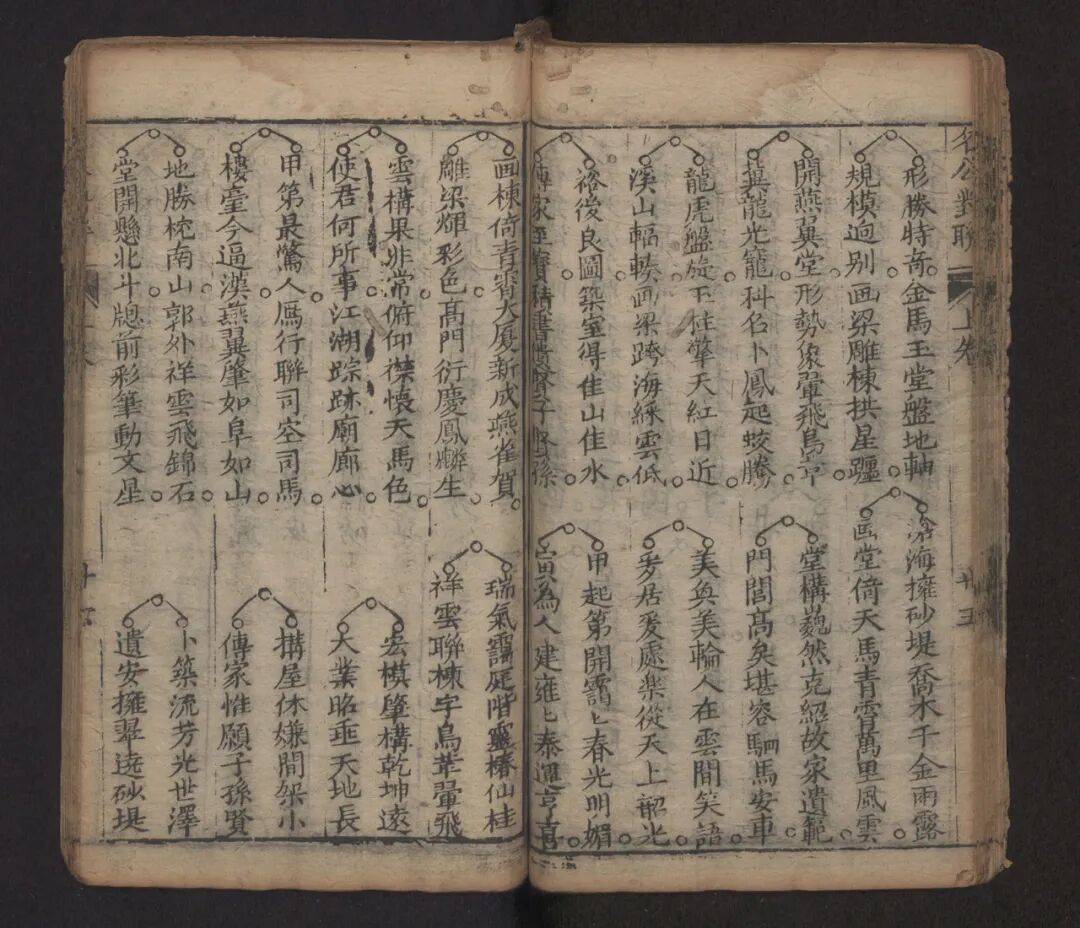 名公對聯
上卷
廿五
形勝特奇金馬玉堂盤地軸
規模迥别画梁雕棟拱星躔
滄海擁砂堤喬木千金雨露
画堂倚天馬青霄萬里風雲
開燕翼堂形勢象翬飛鳥革
冀龍光寵科名卜鳳起蛟騰
堂構巍然克紹故家遺範
門閭高矣堪容駟馬安車
龍虎盤旋玉柱擎天紅日近
溪山輻輳画梁跨海綵雲低
美奐美輪人在雲間笑語
爰居爰處樂從天上韶光
裕後良圖築室得佳山佳水
傳家至寶積書賢子賢孫
甲起第開靄〻春光明媚
寅為人建雍〻泰運亨嘉
画棟倚青霄大廈新成燕雀賀
雕梁輝彩色高門衍慶鳳麟生
瑞氣靄庭階靈椿仙桂
祥雲聯棟宇鳥革翬飛
雲構果非常俯仰襟懷天馬色
使君何所事江湖踪跡廟廊心
宏模肇構乾坤遠
大業昭垂天地長
甲第最驚人鴈行聯司空司馬
樓臺今逼漢燕翼肇如阜如山
搆屋休嫌間架小
傳家惟願子孫賢
地勝枕南山郭外祥雲飛錦石
堂開懸北斗牕前彩筆動文星
卜築流芳光世澤
遺安擁翠遶砂堤